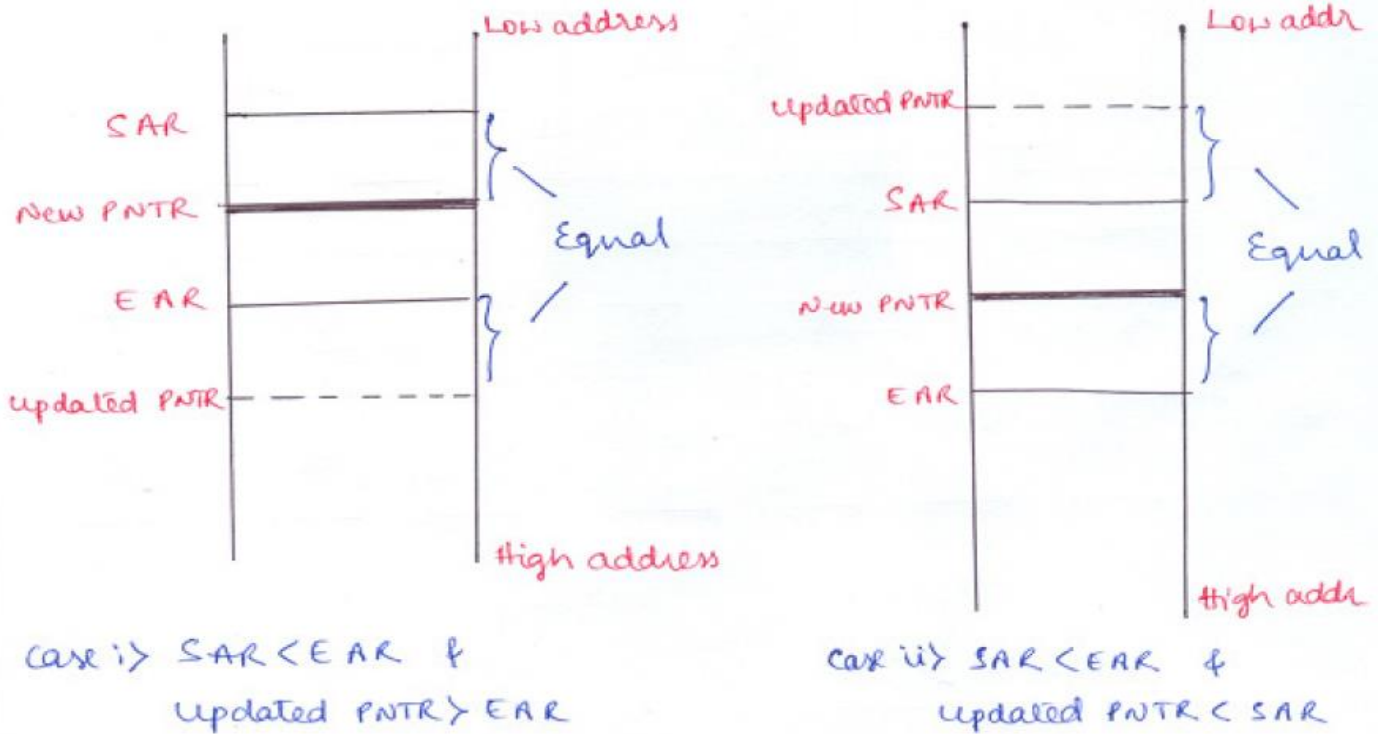 Low address
SAR
New PNTR
Equal
EAR
updated PNTR
High address
case i> SAR < EAR &
updated PNTR > EAR
Low addr
updated PNTR
SAR
Equal
New PNTR
EAR
High addr
case ii> SAR < EAR &
updated PNTR < SAR